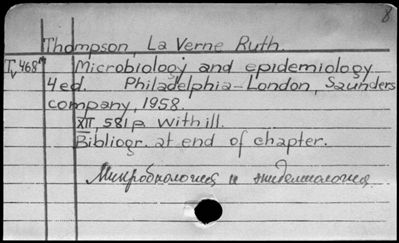 8
Thompson, La Verne Ruth.
Tv468 Microbiology and epidemiology
4 ed. Philadelphia-London, Saunders
company, 1958.
XII, 581 p. with ill.
Bibliogr. at end of chapter.
Микробиология и эпидемиология